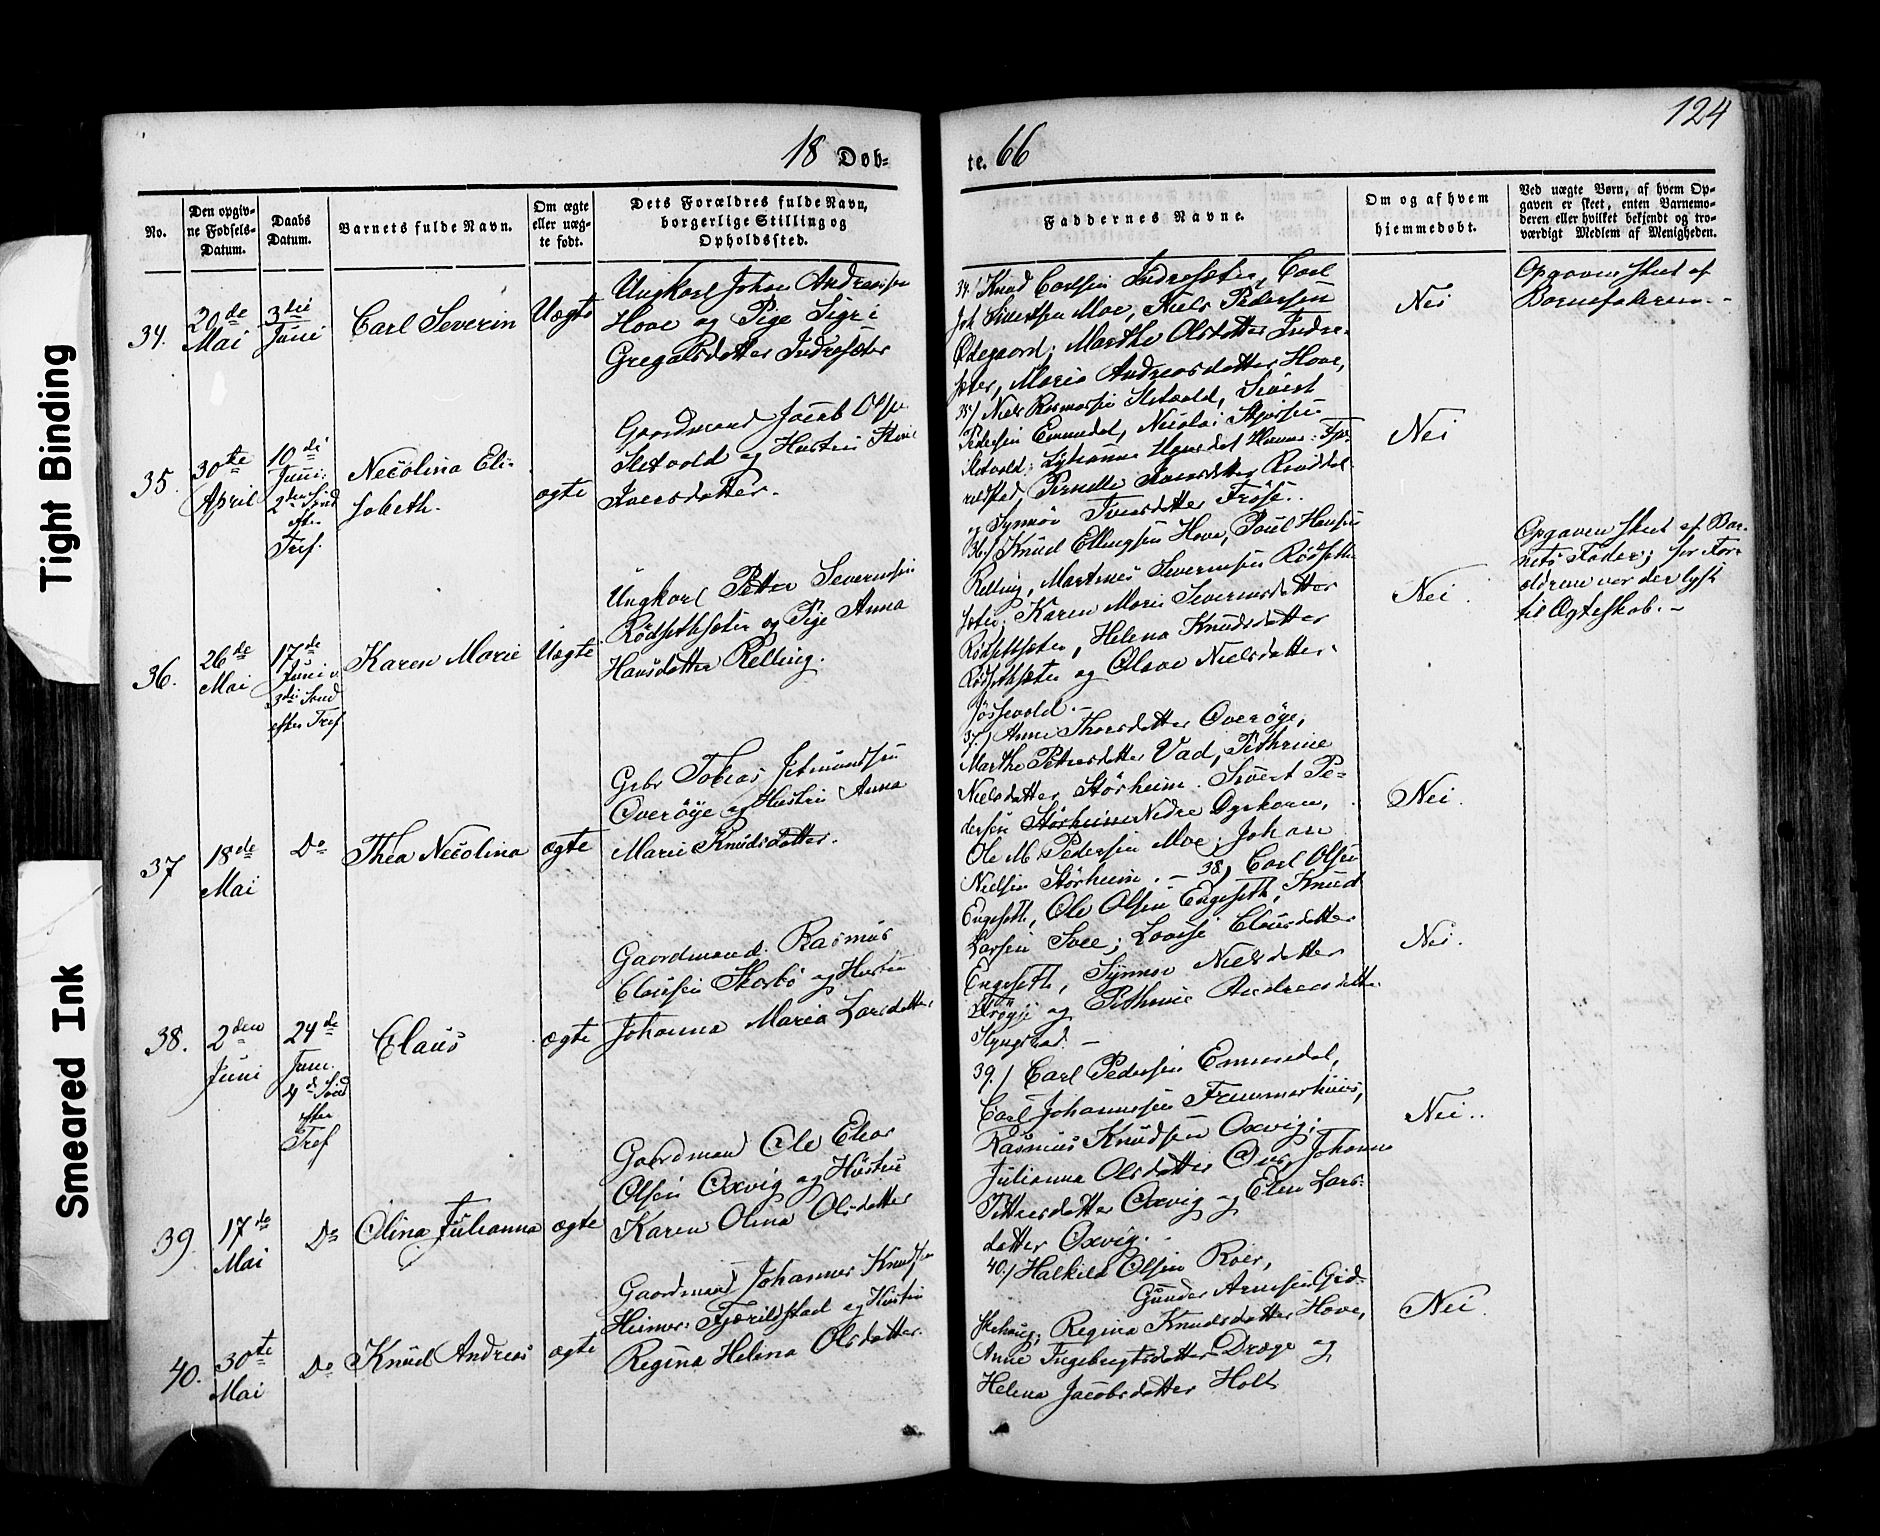 124
18 Döb=
te. 66
No.
Den opgiv=
ne Fødsels=
Datum.
Daabs
Datum.
Barnets fulde Navn.
Om ægte
eller uæg=
te født.
Dets Forældres fulde Navn,
borgerlige Stilling og
Opholdssted.
Faddernes Navne.
Om og af hvem
hjemmedøbt.
Ved uægte Børn, af hvem Op=
gaven er skeet, enten Barnemo=
deren eller hvilket bekjendt og tro=
værdigt Medlem af Menigheden.
34.
20de
Mai
3die
Juni
Carl Severin
Uægte
Ungkarl Johan Andreassen
Hove og Pige Sigri
Gregaldsdatter Indresæter
34./ Knud Carlsen Indresæter, Carl
Joh Sivertsen Moe, Niels Pedersen
Ødegaard; Marthe Olsdatter Indre-
sæter, Marie Andreasdatter Hove,
Nei
Opgaven skeet af
Barnefaderen.-
35.
30te
April
10de
Juni:
2den Sønd
efter
Tref.
Necolina Eli-
sabeth.
ægte
Gaardmand Jacob Olsen
Sletvold og Hustru
Iversdatter.
35/ Niels Rasmussen Sletvold, Sivert
Pedersen Emmedal, Nicolai
Sletvold;
Pernelle Iversdatter
og Synnøv Iversdatter
Nei
36.
26de
Mai
17de
Juni
3die Sønd
efter Tref
Karen Marie
Uægte
Ungkarl Petter Severinsen
Rødsethsæter og Pige Anna
Hansdatter Relling.
36/ Knud Ellingsen Hove, Poul Hansen
Relling, Martines Severinsen Rødseth-
sæter; Karen Marie Severinsdatter
Rødsethsæter, Helena Knudsdatter
Rødsethsæter og Olave Nielsdatter
Jøssevold.-
Nei.
Opgaven skeet af Bar-
nets Fader; for For-
ældrene var der lyst
til Ægteskab.-
37
18de
Mai
Do
Thea Necolina
ægte
Gbr Tobias Jetmundsen
Overøye og Hustru Anna
Marie Knudsdatter.
37./ Anne Thoresdatter Overøye,
Marthe Petersdatter Vad, Pethrine
Nielsdatter Störheim. Sivert Pe-
dersen Störheim Nedre Dyrkorn,
Ole M. Pedersen Moe, Johan
Nielsen Störheim.-
Nei.
38.
2den
Juni
24de
Juni.
4de Sønd
efter
Tref
Claus
ægte
Gaardmand Rasmus
Clausen Skorbö og Hustru
Johanna Maria Larsdatter
38, Carl Olsen
Engeseth, Ole Olsen Engeseth, Knud
Larsen Svee; Lovise Clausdatter
Engeseth, Synnøv Nielsdatter
og Pethrine Andreasdatter
-
Nei.
39.
17de
Mai
Do
Olina Julianna
ægte
Gaardmand Ole Elias
Olsen Oxvig og Hustru
Karen Olina Olsdatter
39./ Carl Pedersen Emmedal,
Carl Johannesen Fremmerhuus,
Rasmus Knudsen Oxvig;
Julianna Olsdatter Aas, Johanna
Pettersdatter Oxvig og Elen Lars-
datter Oxvig.-
Nei..
40.
30te
Mai
Do
Knud Andreas
ægte
Gaardmand Johannes Knudsen
Fjørilstad og Hustru
Regina Helena Olsdatter.
40./ Halkild Olsen Roer,
Gunder Arnesen Gid-
skehaug; Regina Knudsdatter Hove,
Anne Ingebrigtsdatter Drage og
Helena Jacobsdatter Holt
Nei.
Tight Binding
Smeared Ink